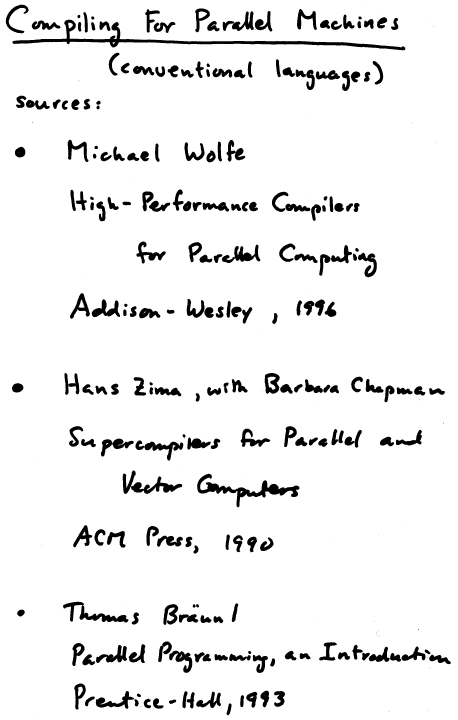 Compiling For Parallel Machines
(conventional languages)
Sources:
• Michael Wolfe
High-Performance Compilers
for Parallel Computing
Addison-Wesley, 1996
• Hans Zima, with Barbara Chapman
Supercompilers for Parallel and
Vector Computers
ACM Press, 1990
• Thomas Bräunl
Parallel Programming, an Introduction
Prentice-Hall, 1993